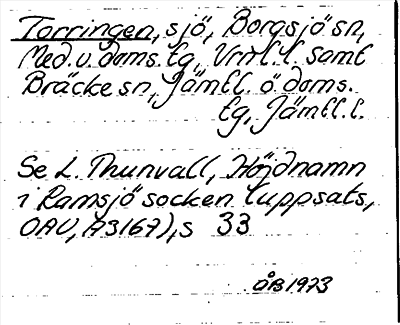 Torringen, sjö, Borgsjö sn,
Med. v. doms. tg, Vrnl. l. samt
Bräcke sn, Jämtl. ö. doms.
tg, Jämtl. l.
Se L. Thunvall, Höjdnamn
i Ramsjö socken (uppsats,
OAU, A3167), s 33
ÅB 1973